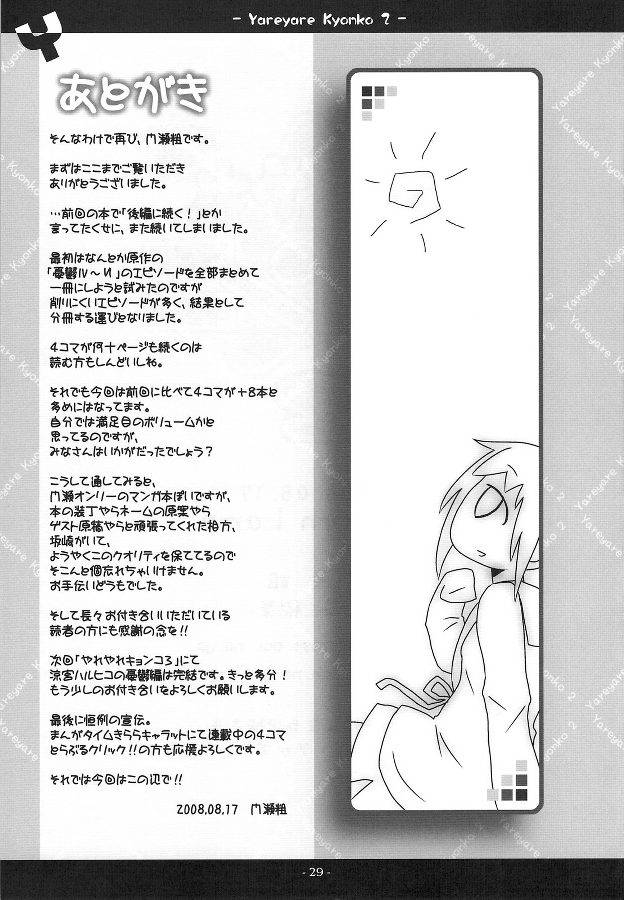 - Yareyare Kyonko 2 -
あとがき
そんなわけで再び、門瀬粗です。
まずはここまでご覧いただき
ありがとうございました。
…前回の本で「後編に続く！」とか
言ってたくせに、また続いてしまいました。
最初はなんとか原作の
「憂鬱Ⅳ〜Ⅵ」のエピソードを全部まとめて
一冊にしようと試みたのですが
削りにくいエピソードが多く、結果として
分冊する運びとなりました。
4コマが何十ページも続くのは
読む方もしんどいしね。
それでも今回は前回に比べて4コマが+8本と
多めにはなってます。
自分では満足目のボリュームかと
思ってるのですが、
みなさんはいかがだったでしょう？
こうして通してみると、
門瀬オンリーのマンガ本ぽいですが、
本の装丁やらネームの原案やら
ゲスト原稿やらと頑張ってくれた相方、
坂崎がいて、
ようやくこのクオリティを保ててるので
そこんと個忘れちゃいけません。
お手伝いどうもでした。
そして長々お付き合いいただいている
読者の方にも感謝の念を!!
次回「やれやれキョンコ3」にて
涼宮ハルヒコの憂鬱編は完結です。きっと多分！
もう少しのお付き合いをよろしくお願いします。
最後に恒例の宣伝。
まんがタイムきららキャラットにて連載中の4コマ
とらぶるクリック!!の方も応援よろしくです。
それでは今回はこの辺で!!
2008.08.17 門瀬粗
- 29 -